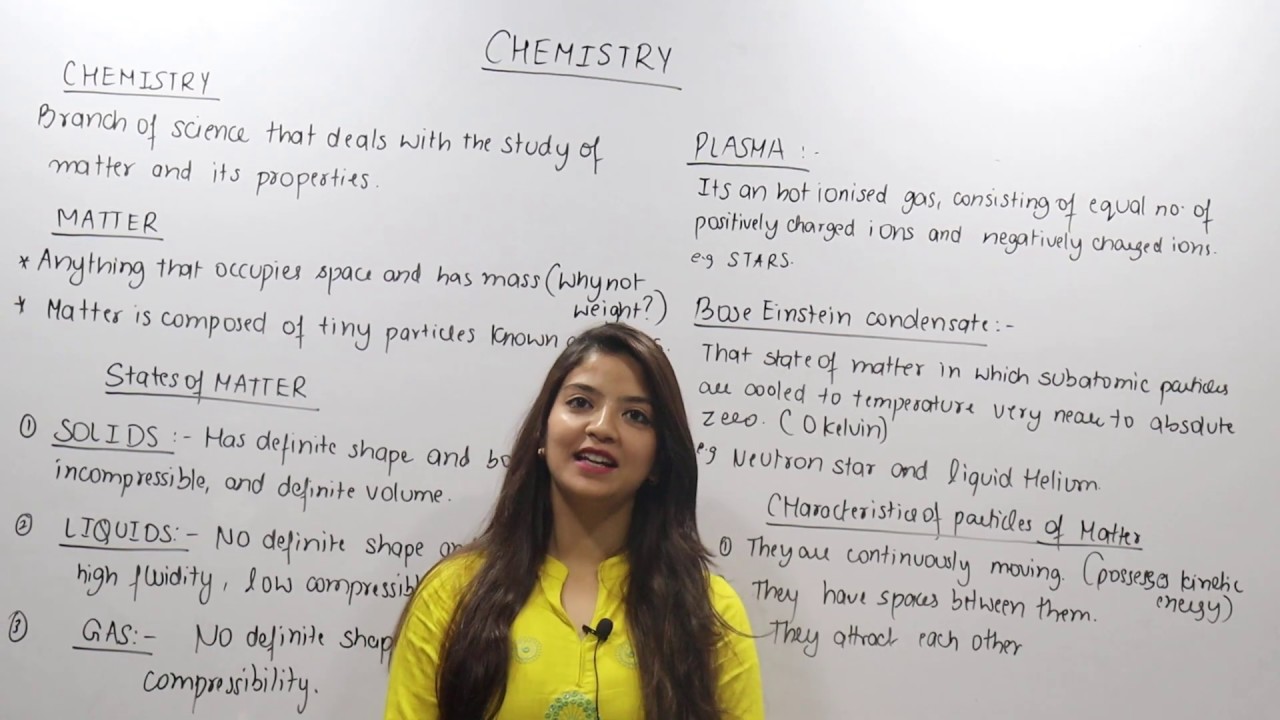 CHEMISTRY
CHEMISTRY
Branch of science that deals with the study of
matter and its properties.
MATTER
* Anything that occupies space and has mass (Why not
weight?)
* Matter is composed of tiny particles known
States of MATTER
① SOLIDS :- Has definite shape and
incompressible, and definite volume.
② LIQUIDS:- No definite shape
high fluidity, low
③ GAS:- No definite
compressibility.
PLASMA :-
Its an hot ionised gas, consisting of equal no. of
positively charged ions and negatively charged ions.
e.g STARS.
Bose Einstein condensate:-
That state of matter in which subatomic particles
are cooled to temperature very near to absolute
zero. (0 kelvin)
eg Neutron star and liquid Helium.
CHaracteristics of particles of Matter
① They are continuously moving. (possesses kinetic
energy)
They have spaces between them.
They attract each other